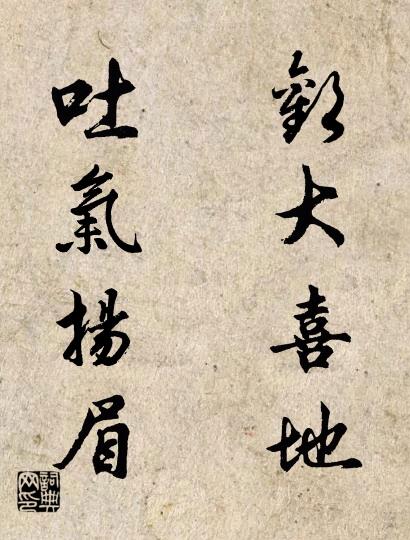 歡大喜地
吐氣揚眉
詞典
网印